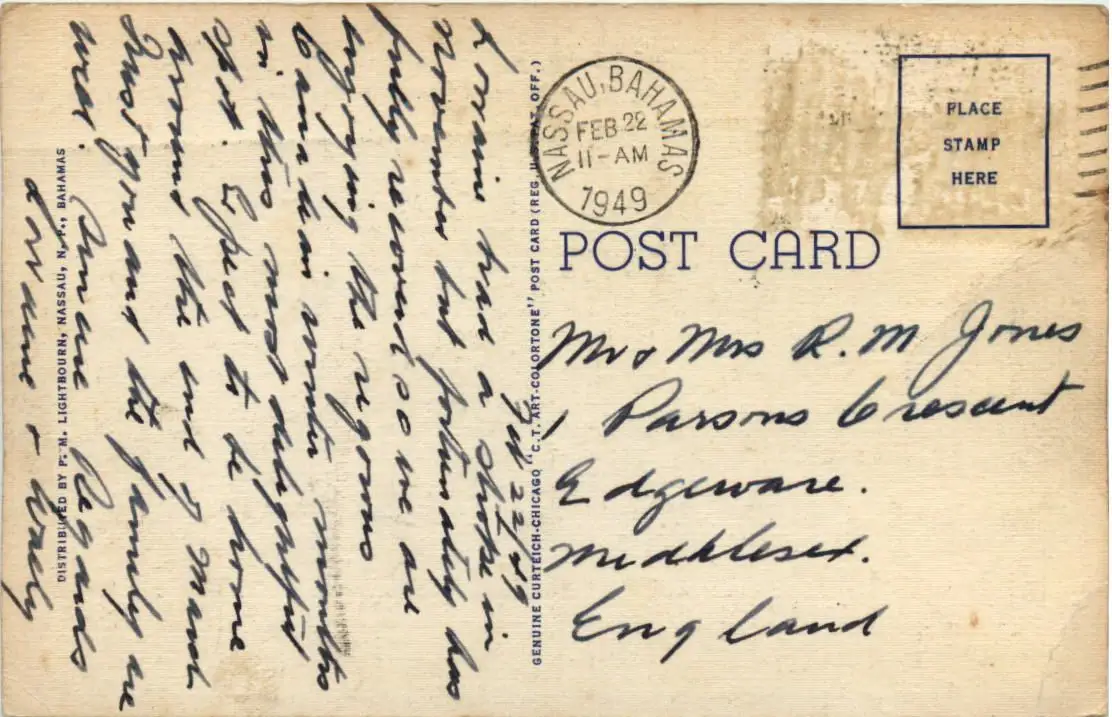 Feb 22/49
Lorraine had a stroke in
November but fortunately has
fully recovered so we are
enjoying the rigorous
Canadian winter months
in this most delightful
spot. Expect to be home
around the end of March
Trust you and the family are
well. Sincere Regards
Lorraine + Wally
DISTRIBUTED BY P. M. LIGHTBOURN, NASSAU, N. P., BAHAMAS
GENUINE CURTEICH-CHICAGO "C.T. ART-COLORTONE" POST CARD (REG. U. S. PAT. OFF.)
NASSAU, BAHAMAS
FEB 22
11-AM
1949
PLACE
STAMP
HERE
POST CARD
Mr & Mrs R. M Jones
1, Parsons Crescent
Edgeware.
Middlesex.
England